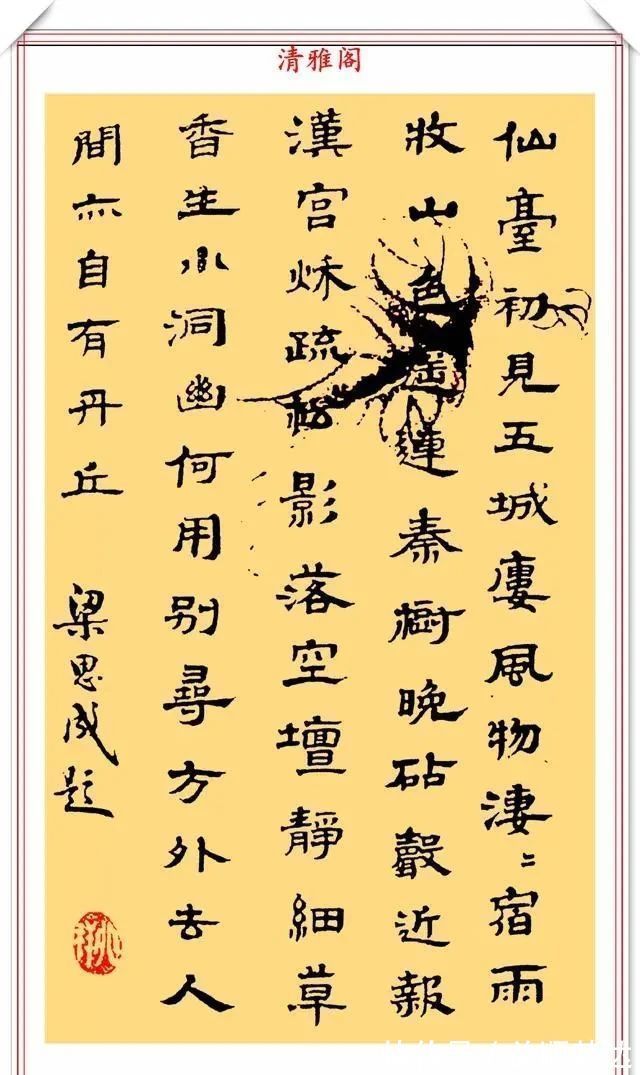 清雅阁
仙臺初見五城廔風物淒〻宿雨
收山色遥連秦樹晚砧聲近報
漢宮秌疏松影落空壇靜細草
香生小洞幽何用别尋方外去人
間亦自有丹丘 梁思成題